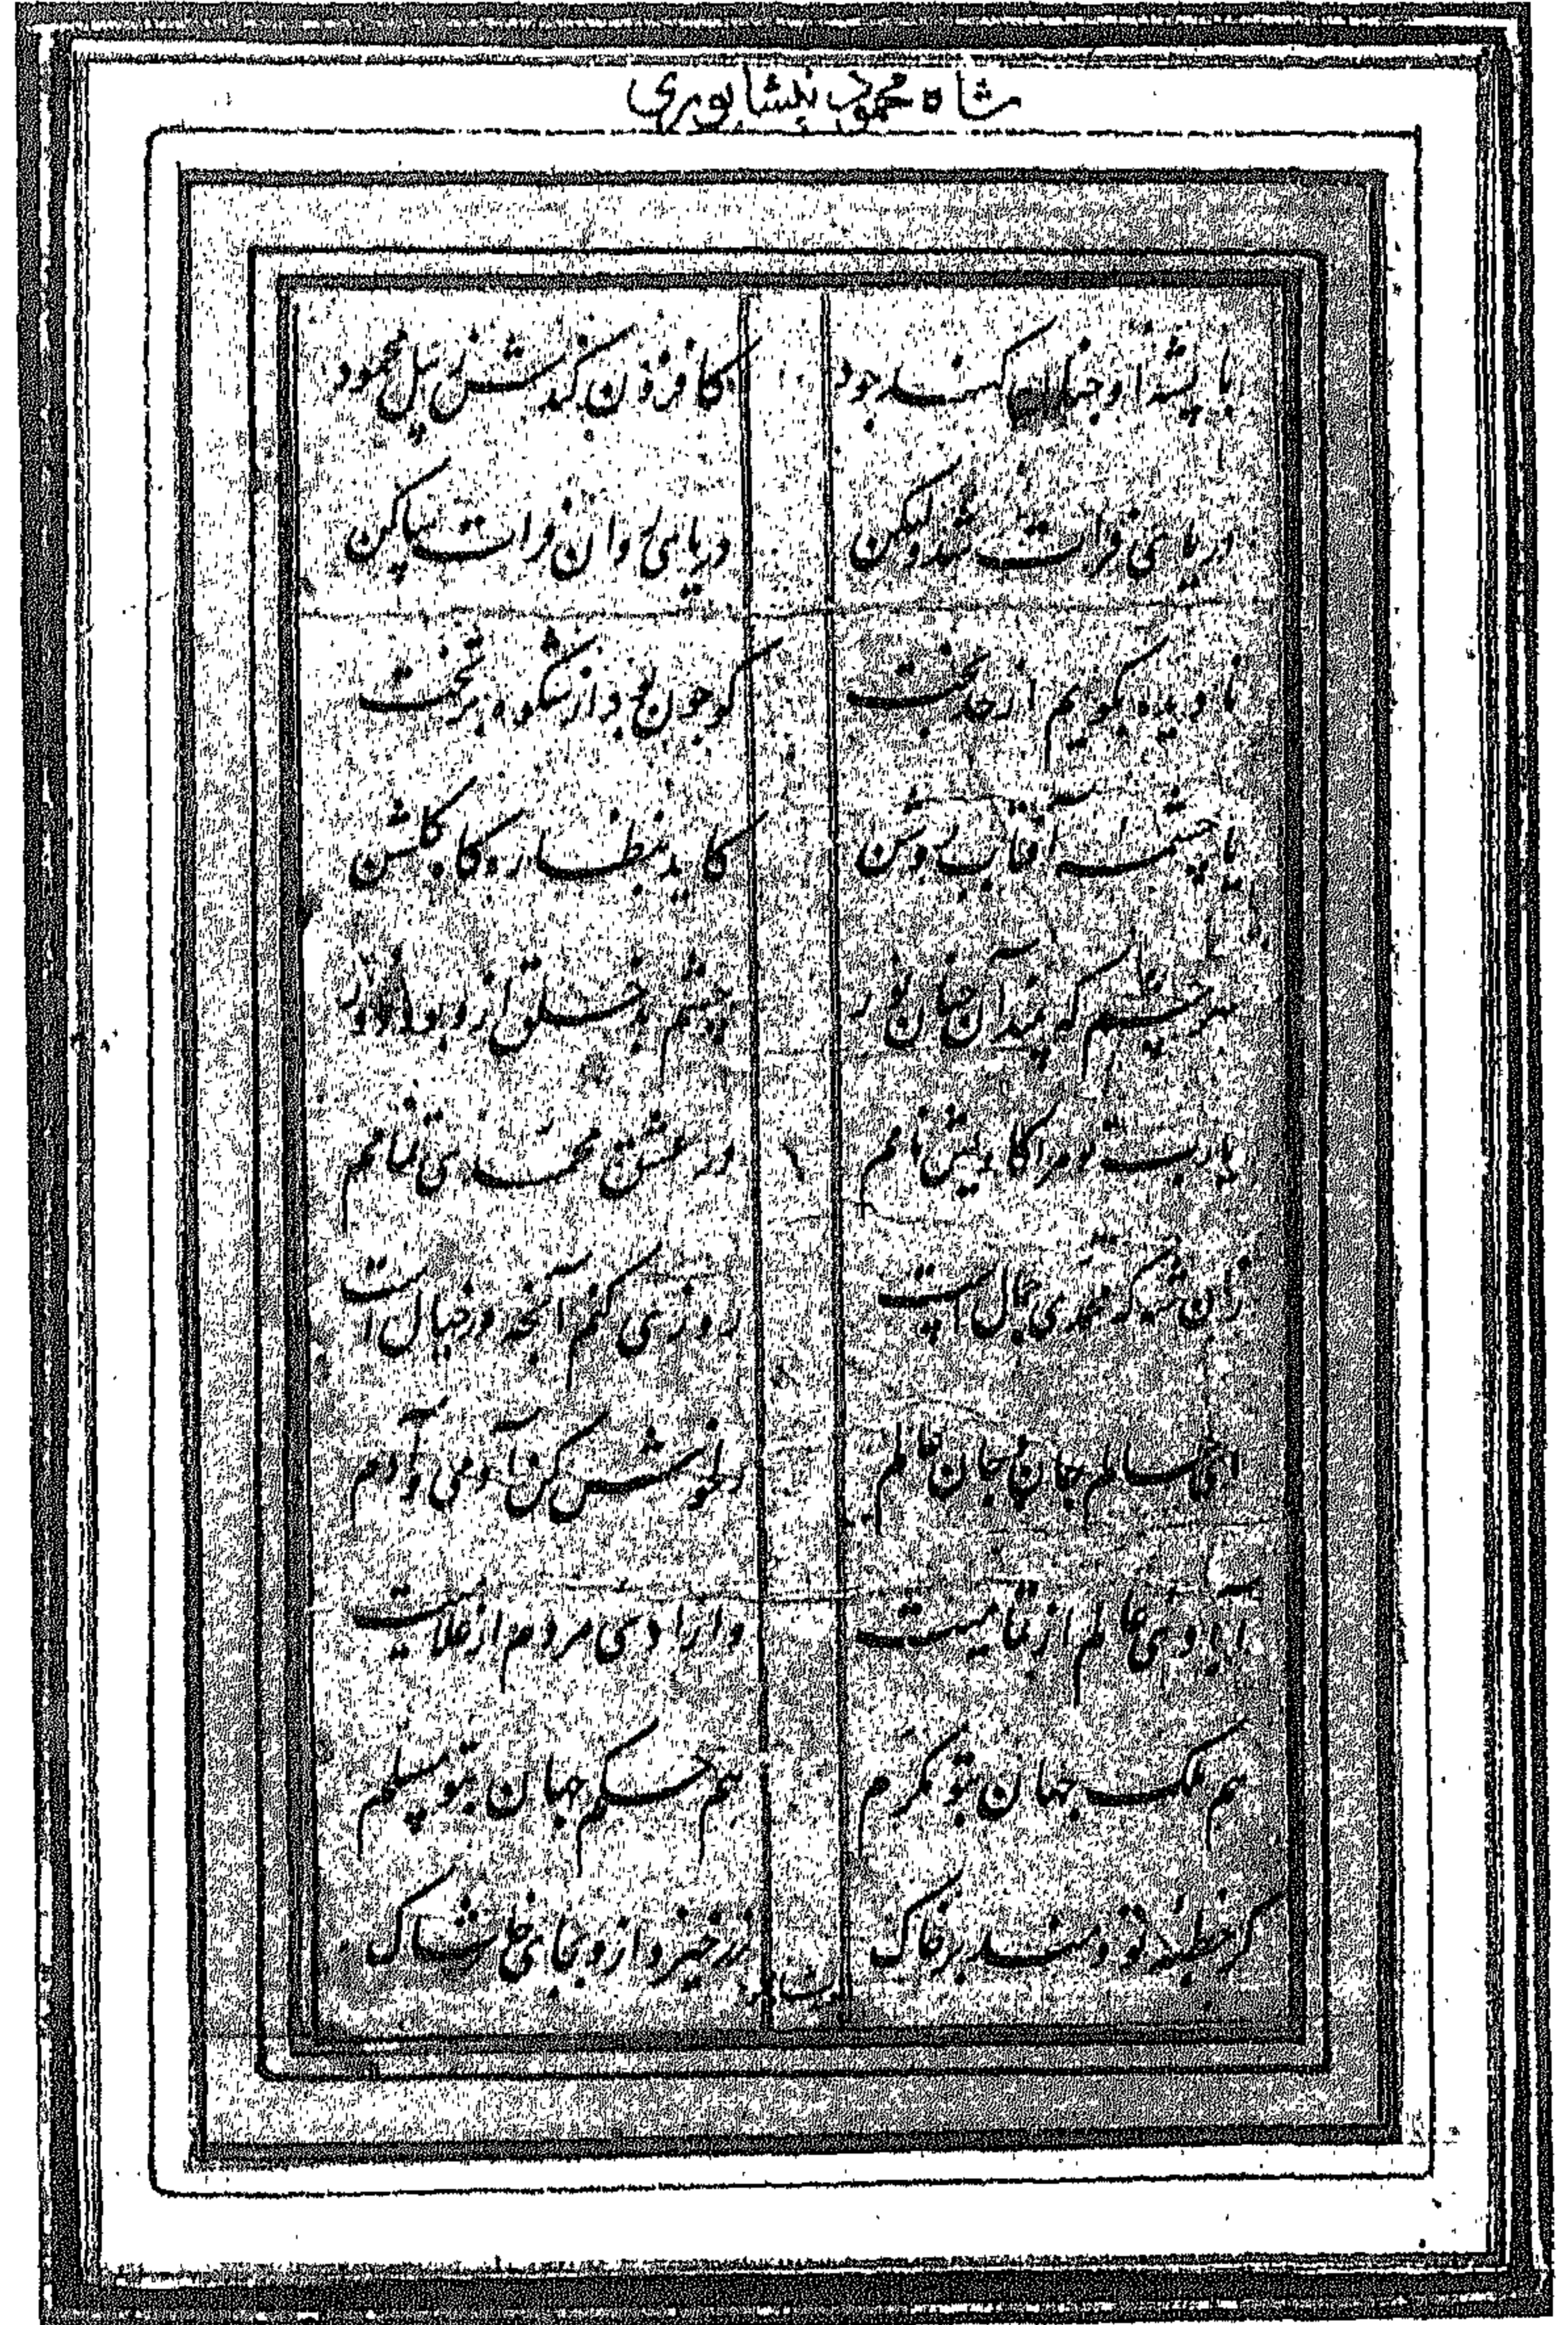 شاه محمود نیشابوری
با پشه او چنان کند جود کافزون کندش ز پیل محمود
دریای فرات شد ولیکن دریای روان فرات ساکن
نادیده بگویم از جد بخت کو چون بود از شکوه بر تخت
یا چشمه آفتاب روشن کاید بنظاره کاه کلشن
هر چشم که بیند آن چنان نور چشم بد خلق ازو بود دور
یارب تو مرا کاویس نامم در عشق محمدی تمامم
زان شه که محمدی جمال است روزی کنم آنچه در خیال است
ای عالم جان و جان عالم دلخوش کن آدمی و آدم
آبادی عالم از تمامیت وازادی مردم از غلامیت
هم ملک جهان بتو مکرم هم حکم جهان بتو مسلم
کر خطبه تو دمند بر خاک زر خیزد ازو بجای خاشاک